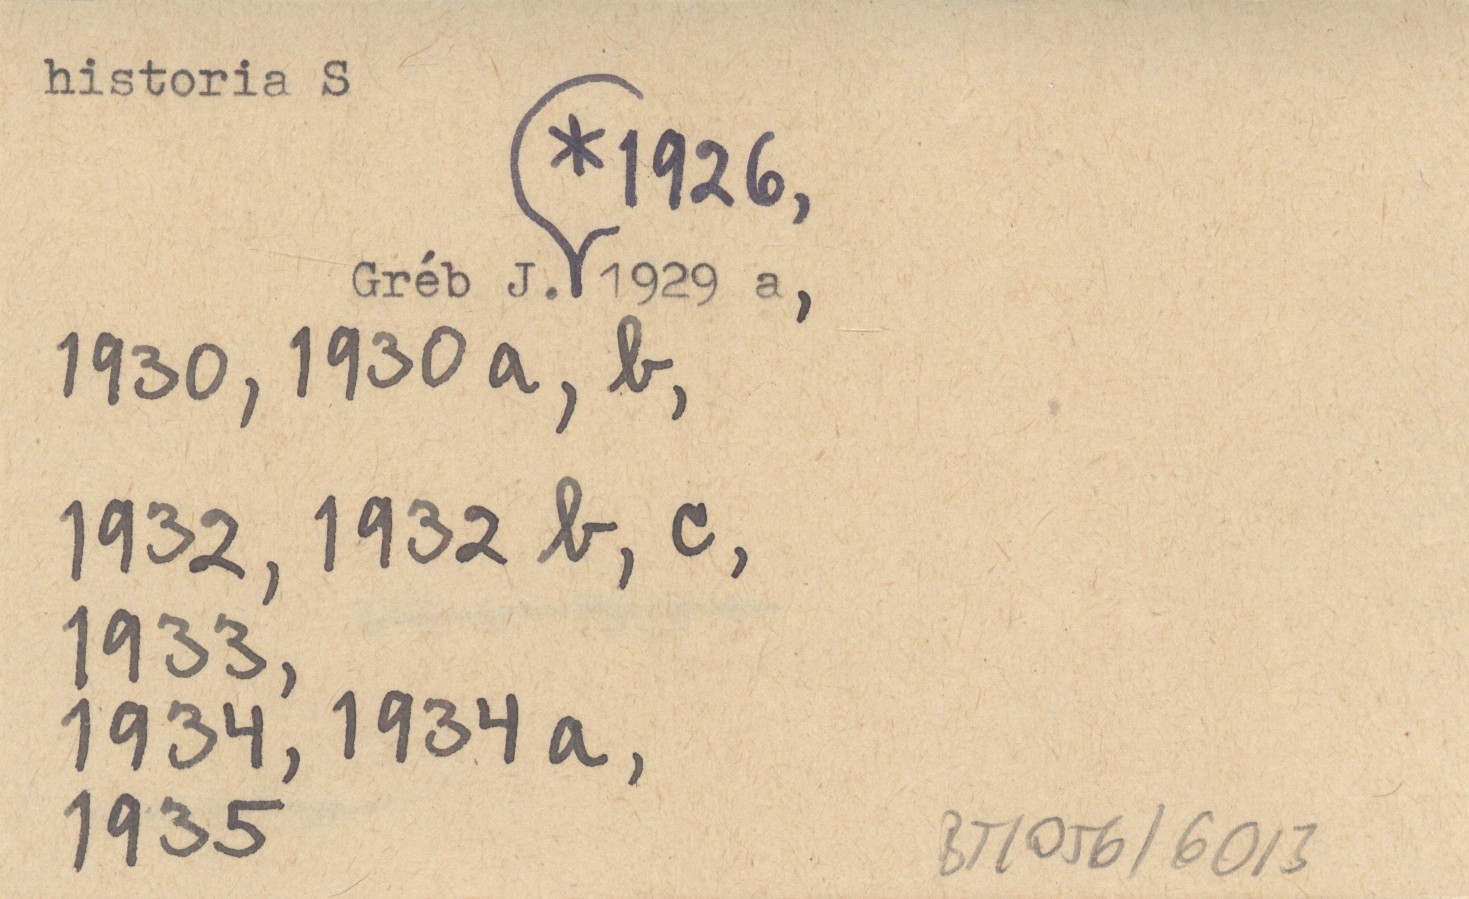 historia S
*1926,
Gréb J. 1929 a,
1930, 1930 a, b,
1932, 1932 b, c,
1933,
1934, 1934 a,
1935
BT1056/6013